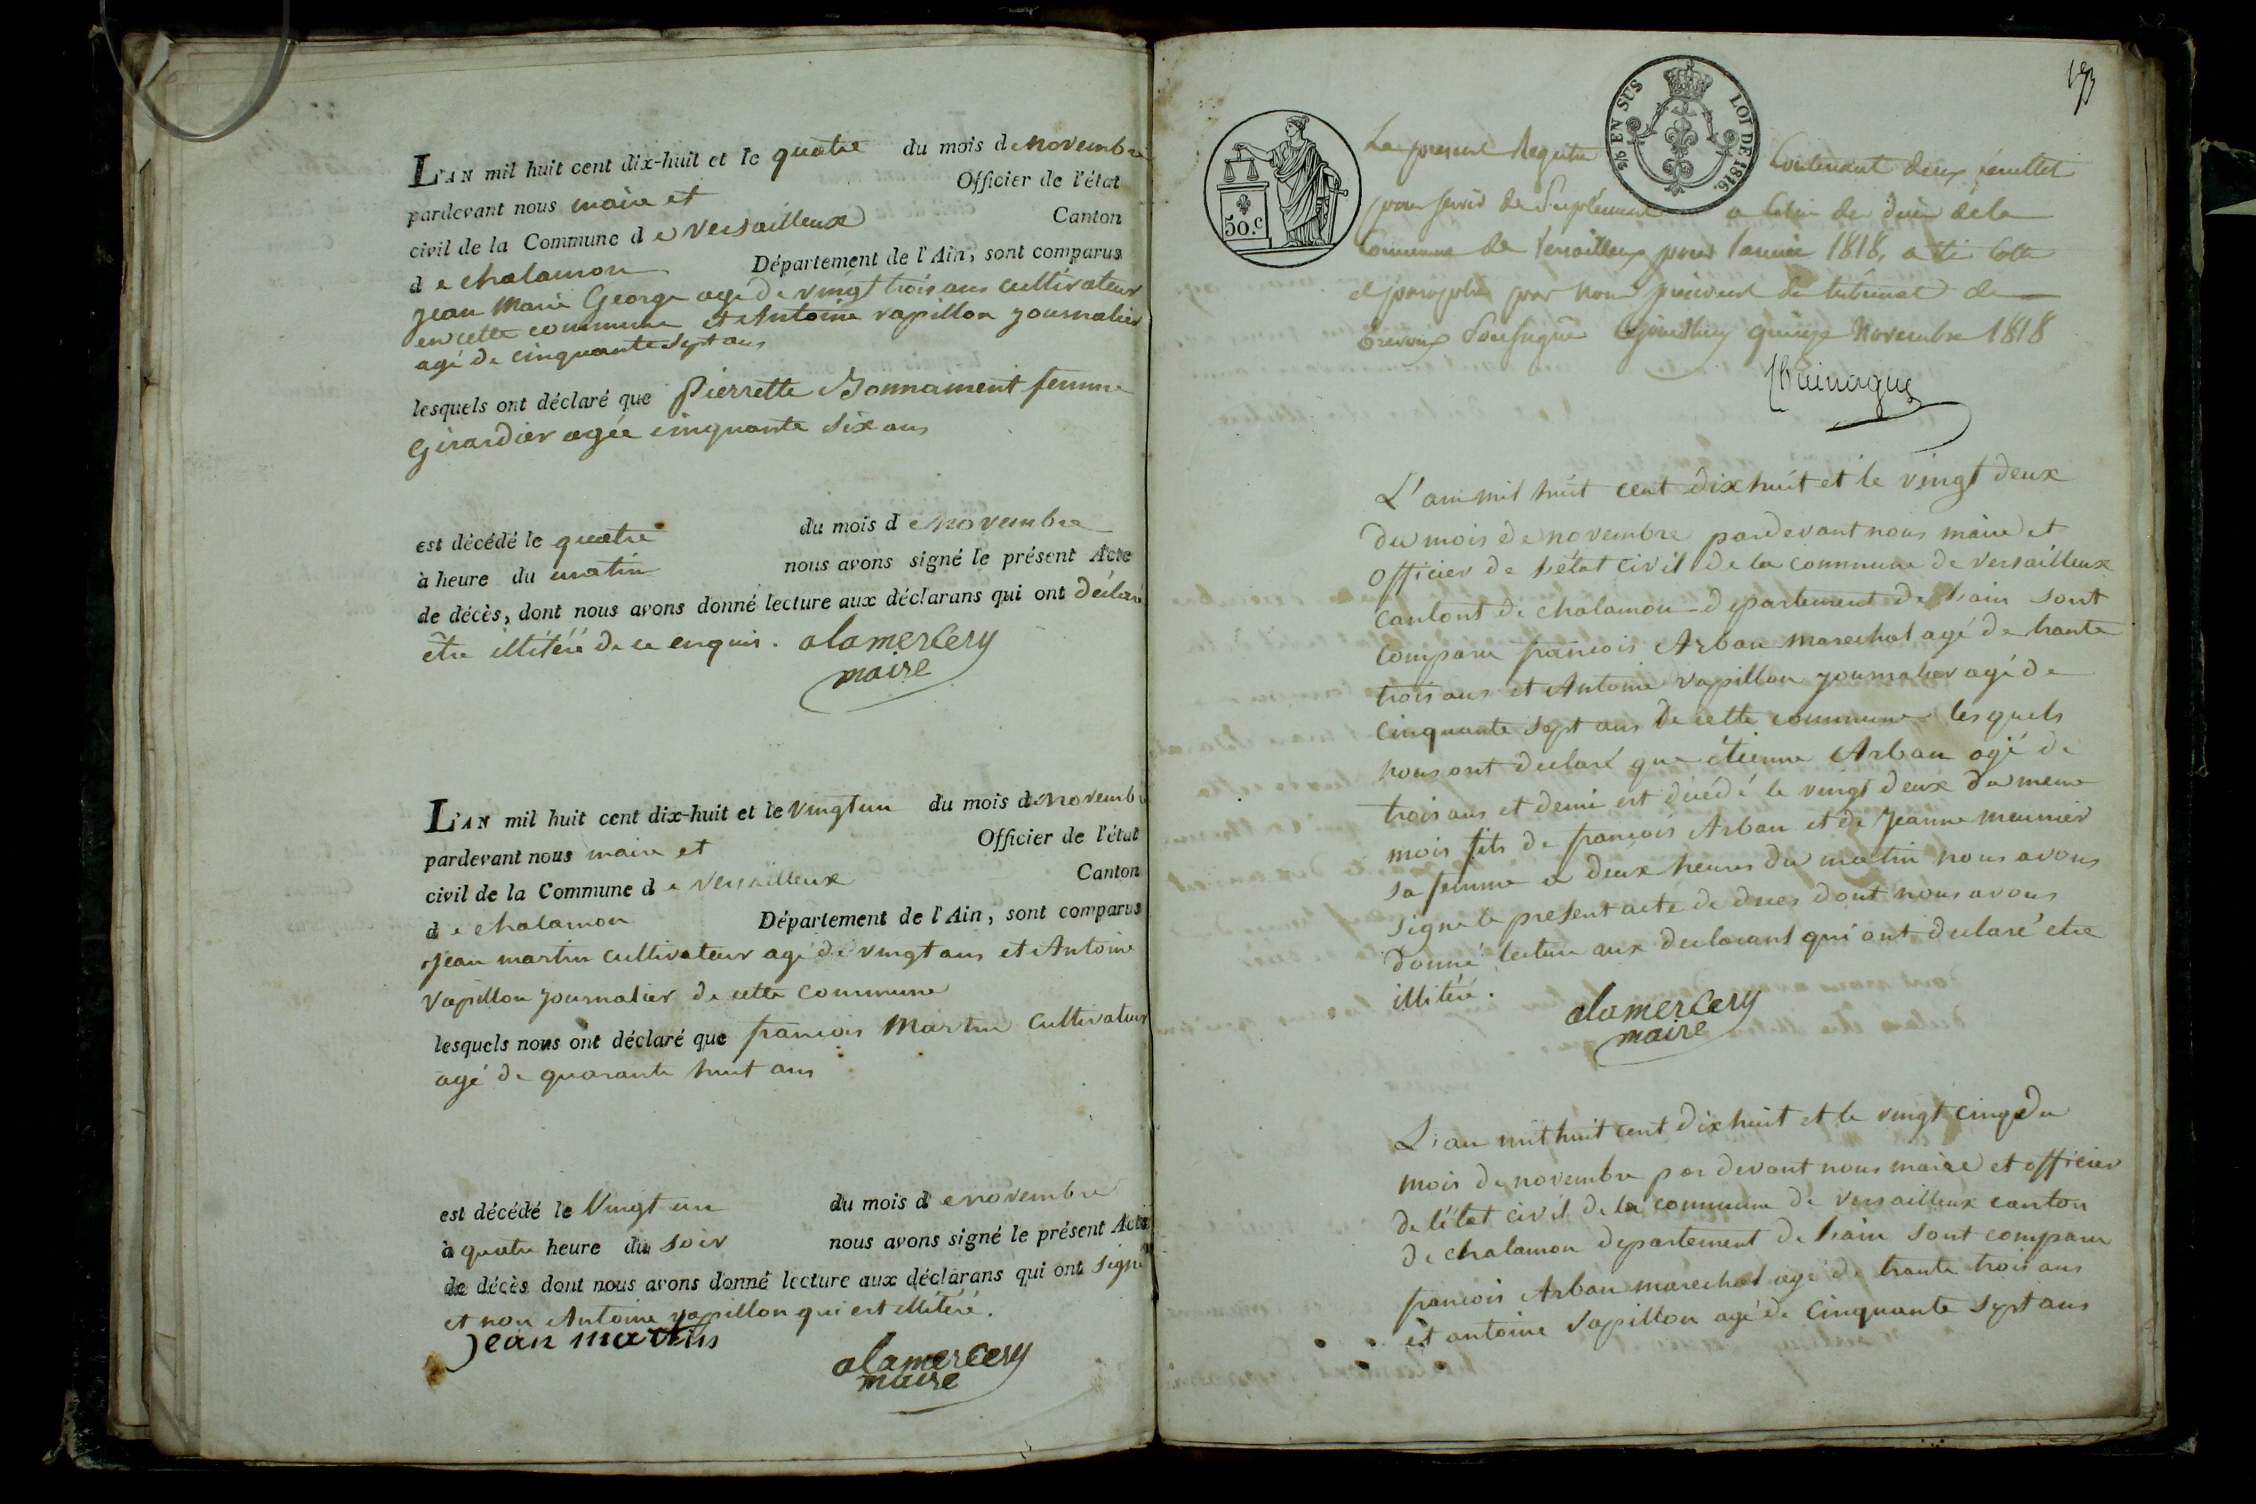 L'AN mil huit cent dix-huit et le quatre du mois de novembre
pardevant nous maire et Officier de l'état
civil de la Commune de versailleux Canton
de chalamon Département de l'Ain, sont comparus
jean Marie George agé de vingt trois ans cultivateur
en cette commune et Antoine vapillon journalier
agé de cinquante sept ans
lesquels ont déclaré que Pierrette Bonnament femme
Girardier agée cinquante six ans
est décédé le quatre du mois de novembre
à heure du matin nous avons signé le présent Acte
de décès, dont nous avons donné lecture aux déclarans qui ont déclaré
être illitéré de ce enquis. alamercery
maire
L'AN mil huit cent dix-huit et le vingt un du mois de novembre
pardevant nous maire et Officier de l'état
civil de la Commune de versailleux Canton
de chalamon Département de l'Ain, sont comparus
jean martin cultivateur agé de vingt ans et Antoine
vapillon journalier de cette commune
lesquels nous ont déclaré que francois Martin cultivateur
agé de quarante huit ans
est décédé le Vingt un du mois de novembre
à quatre heure du soir nous avons signé le présent Acte
de décès dont nous avons donné lecture aux déclarans qui ont signé
et non Antoine vapillon qui est illitéré.
jean martin
alamercery
maire
193
26 EN SUS LOI DE 1816.
50.c
Le present Registre Contenant deux feuillets
pour servir de Suplément a Celui de deces de la
Commune de Versailleux pour l'année 1818, a été Cotté
et paraphé par nous president du tribunal de
trevoux Soussigné Cejourdhuy quinze Novembre 1818
L'an mil huit cent dix huit et le vingt deux
du mois de novembre pardevant nous maire et
officier de l'état civil de la commune de versailleux
cantont de chalamon departement de l'ain sont
comparu francois Arban marechal agé de trante
trois ans et Antoine vapillon journalier agé de
cinquante sept ans de cette commune lesquels
nous ont declaré que étienne Arban agé de
trois ans et demi est décédé le vingt deux du meme
mois fils de françois Arban et de jeanne meunier
sa femme a deux heures du matin nous avons
signé le present acte de deces dont nous avons
donné lecture aux declarant qui ont declaré etre
illitéré.
alamercery
maire
L'an mil huit cent dix huit et le vingt cinq du
mois de novembre par devant nous maire et officier
de l'état civil de la commune de versailleux canton
de chalamon departement de l'ain sont comparu
francois Arban marechal agé de trante trois ans
et antoine vapillon agé de cinquante sept ans